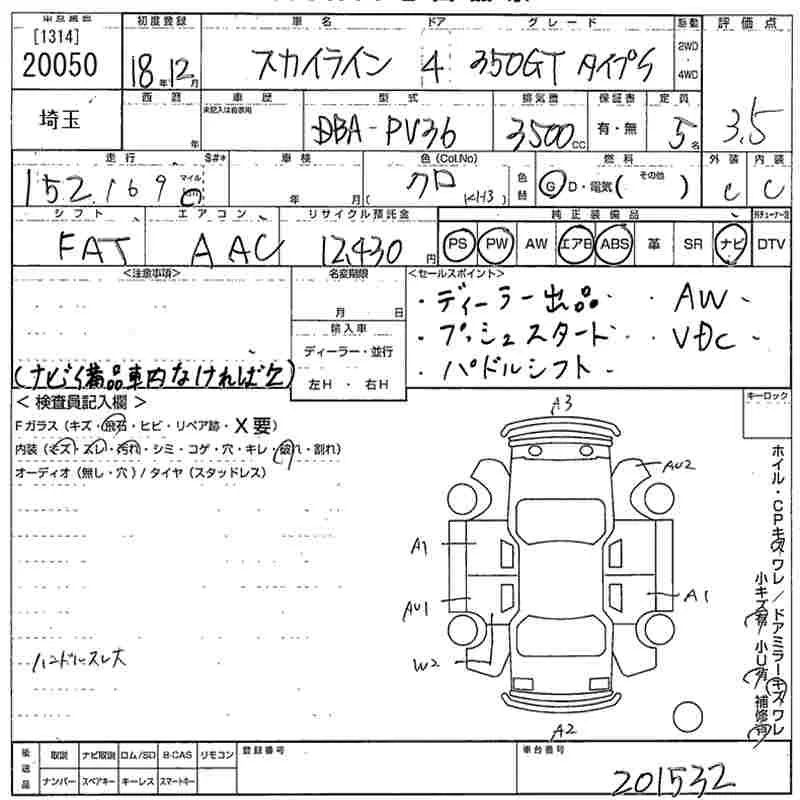 [1314]
20050
初度登録
18年12月
車名
スカイライン
ドア
4
グレード
350GT タイプS
駆動
2WD
4WD
評価点
3.5
埼玉
西暦
年
車歴
未記入は自家用
型式
DBA-PV36
排気量
3500cc
保証書
有・無
定員
5名
走行
152,169
マイル
S#*
車検
年 月(
色(Col.No)
クロ
KH3)
色替
燃料
G D・電気(その他)
外装
C
内装
C
シフト
FAT
エアコン
AAC
リサイクル預託金
12,430円
純正装備品
PS PW AW エアB ABS 革 SR ナビ DTV
<注意事項>
(ナビ、備品車内なければ欠)
名変期限
月 日
輸入車
ディーラー・並行
左H ・ 右H
<セールスポイント>
・ディーラー出品 ・AW
・プッシュスタート ・VDC
・パドルシフト
<検査員記入欄>
Fガラス(キズ・飛石・ヒビ・リペア跡・X要)
内装(キズ・スレ・汚れ・シミ・コゲ・穴・キレ・破れ・割れ)
オーディオ(無し・穴)/タイヤ(スタッドレス)
ハンドルスレ大
キーロック
A3
AU2
A1
AU1
A1
W2
A2
ホイル・CPキズワレ/ドアミラーキズワレ
小キズ有 小U有 補修有
後送品
取説 ナビ取説 ロム/SD B-CAS リモコン
ナンバー スペアキー キーレス スマートキー
登録番号
車台番号
201532